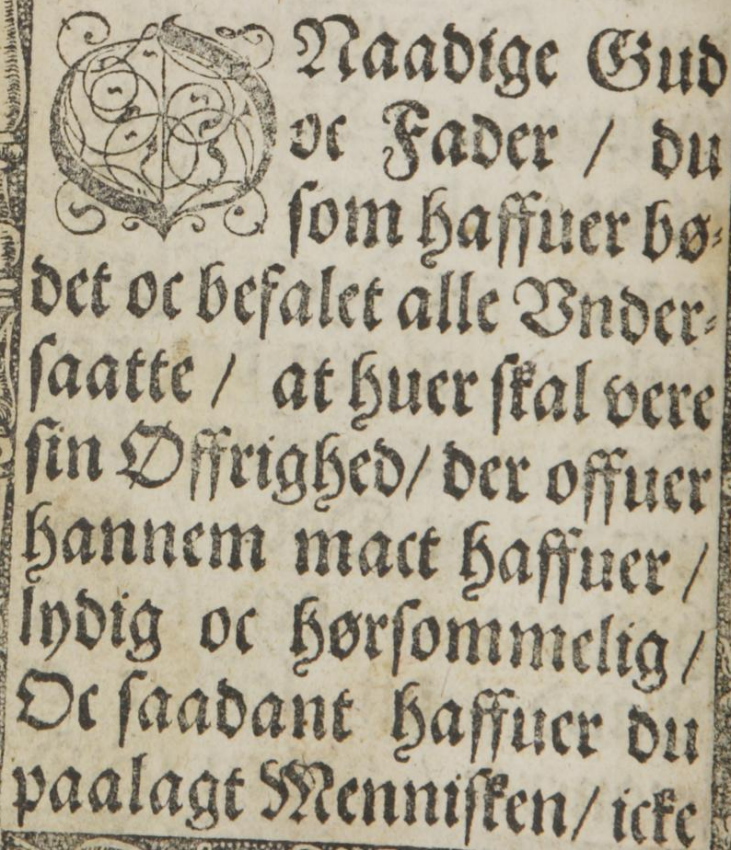 O Naadige Gud
oc Fader / du
som haffuer bø-
det oc befalet alle Vnder-
saatte / at huer skal vere
sin Øffrighed / der offuer
hannem mact haffuer /
lydig oc hørsommelig /
Oc saadant haffuer du
paalagt Mennisken / icke